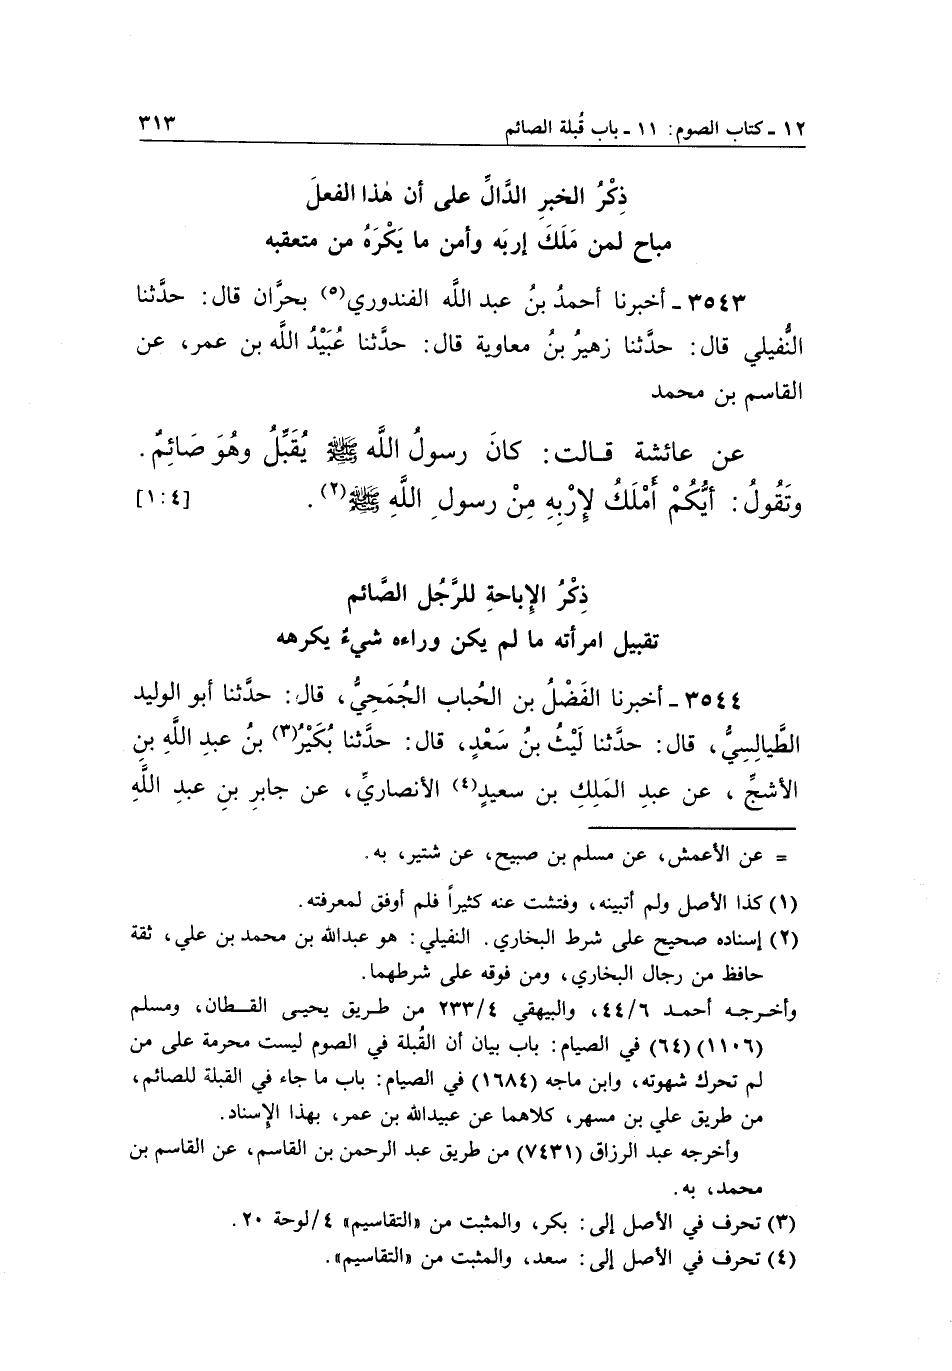 ١٢ - كتاب الصوم: ١١ - باب قُبلة الصائم ٣١٣
ذِكْرُ الخبرِ الدَّالِّ على أن هٰذا الفعلَ
مباح لمن مَلَكَ إربَه وأمن ما يَكْرَهُ من متعقبه
٣٥٤٣ - أخبرنا أحمدُ بنُ عبد اللَّه الفندوري(٥) بحرَّان قال: حدَّثنا
النُّفيلي قال: حدَّثنا زهيرُ بنُ معاوية قال: حدَّثنا عُبَيْدُ اللَّه بن عمر، عن
القاسم بن محمد
عن عائشة قالت: كانَ رسولُ اللَّه ﷺ يُقَبِّلُ وهُوَ صَائِمٌ.
وتَقُولُ: أيُّكُمْ أَمْلَكُ لإرْبِهِ مِنْ رسولِ اللَّهِ ﷺ(٢). [٤ :١]
ذِكْرُ الإباحةِ للرَّجُل الصَّائم
تقبيل امرأته ما لم يكن وراءه شيءٌ يكرهه
٣٥٤٤ - أخبرنا الفَضْلُ بن الحُباب الجُمَحِيُّ، قال: حدَّثنا أبو الوليد
الطَّيالِسِيُّ، قال: حدَّثنا لَيْثُ بنُ سَعْدٍ، قال: حدَّثنا بُكَيْرُ(٣) بنُ عبدِ اللَّهِ بنِ
الأشجِّ، عن عبدِ المَلِكِ بن سعيدٍ(٤) الأنصاريِّ، عن جابرِ بنِ عبدِ اللَّهِ
= عن الأعمش، عن مسلم بن صبيح، عن شتير، به.
(١) كذا الأصل ولم أتبينه، وفتشت عنه كثيراً فلم أوفق لمعرفته.
(٢) إسناده صحيح على شرط البخاري. النفيلي: هو عبدالله بن محمد بن علي، ثقة
حافظ من رجال البخاري، ومن فوقه على شرطهما.
وأخرجه أحمد ٤٤/٦، والبيهقي ٢٣٣/٤ من طريق يحيى القطان، ومسلم
(١١٠٦) (٦٤) في الصيام: باب بيان أن القُبلة في الصوم ليست محرمة على من
لم تحرك شهوته، وابن ماجه (١٦٨٤) في الصيام: باب ما جاء في القبلة للصائم،
من طريق علي بن مسهر، كلاهما عن عبيدالله بن عمر، بهذا الإسناد.
وأخرجه عبد الرزاق (٧٤٣١) من طريق عبد الرحمن بن القاسم، عن القاسم بن
محمد، به.
(٣) تحرف في الأصل إلى: بكر، والمثبت من «التقاسيم» ٤/لوحة ٢٠.
(٤) تحرف في الأصل إلى: سعد، والمثبت من «التقاسيم».